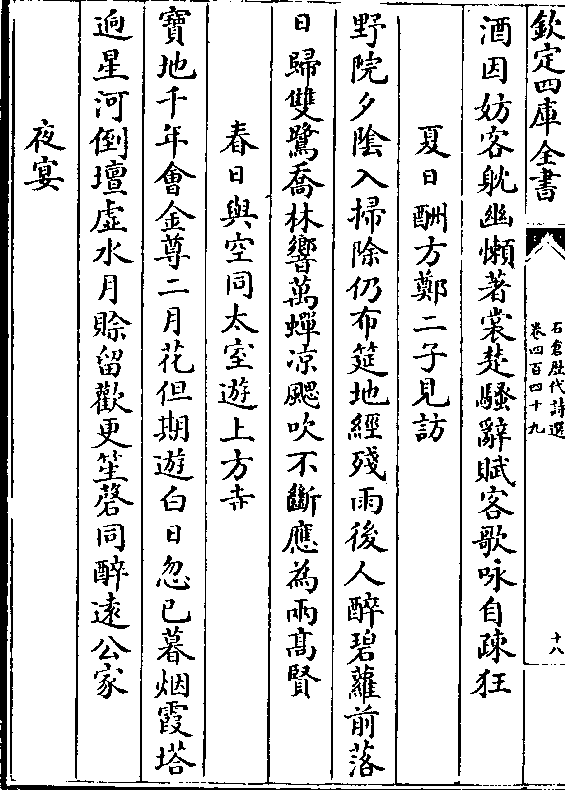 欽定四庫全書
石倉歴代詩選
卷四百四十九
十八
酒因妨客躭幽懶著裳楚騷辭賦客歌咏自疎狂
夏日酬方鄭二子見訪
野院夕隂入掃除仍布筵地經殘雨後人醉碧蘿前落
日歸雙鷺喬林響萬蟬凉颸吹不斷應為兩髙賢
春日與空同太室遊上方寺
寶地千年會金尊二月花但期遊白日忽已暮烟霞塔
逈星河倒壇虚水月賖留歡更笙磬同醉逺公家
夜宴